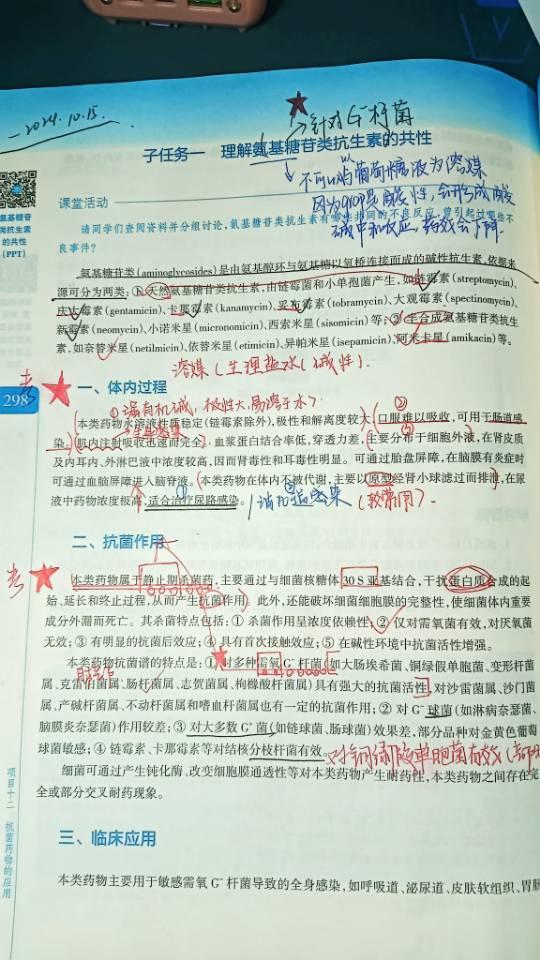 2024.10.15.
→针对G⁻杆菌
子任务一 理解氨基糖苷类抗生素的共性
不可以与葡萄糖液为溶媒
因为
酸性,会形成酸
碱中和反应,药效会下降.
氨基糖苷
类抗生素
的共性
(PPT)
课堂活动
请同学们查阅资料并分组讨论,氨基糖苷类抗生素有哪些共同的不良反应,曾引起过哪些不
良事件?
氨基糖苷类(aminoglycosides)是由氨基醇环与氨基糖以氧桥连接而成的碱性抗生素,依据来
源可分为两类:①天然氨基糖苷类抗生素,由链霉菌和小单孢菌产生,如链霉素(streptomycin)、
庆大霉素(gentamicin)、卡那霉素(kanamycin)、妥布霉素(tobramycin)、大观霉素(spectinomycin)、
新霉素(neomycin)、小诺米星(micronomicin)、西索米星(sisomicin)等;②半合成氨基糖苷类抗生
素,如奈替米星(netilmicin)、依替米星(etimicin)、异帕米星(isepamicin)、阿米卡星(amikacin)等。
溶媒(生理盐水(碱性).
考
298
一、体内过程
①弱有机碱,极性大,易溶于水?
本类药物水溶液性质稳定(链霉素除外),极性和解离度较大,口服难以吸收,可用于肠道感
染。肌内注射吸收迅速而完全,血浆蛋白结合率低,穿透力差,主要分布于细胞外液,在肾皮质
及内耳内、外淋巴液中浓度较高,因而肾毒性和耳毒性明显。可通过胎盘屏障,在脑膜有炎症时
可通过血脑屏障进入脑脊液。本类药物在体内不被代谢,主要以原型经肾小球滤过而排泄,在尿
液中药物浓度极高,适合治疗尿路感染。
消化道感染(较常用).
二、抗菌作用
考
本类药物属于静止期杀菌药,主要通过与细菌核糖体30 S亚基结合,干扰蛋白质合成的起
始、延长和终止过程,从而产生抗菌作用。此外,还能破坏细菌细胞膜的完整性,使细菌体内重要
成分外漏而死亡。其杀菌特点包括:①杀菌作用呈浓度依赖性;②仅对需氧菌有效,对厌氧菌
无效;③有明显的抗菌后效应;④具有首次接触效应;⑤在碱性环境中抗菌活性增强。
本类药物抗菌谱的特点是:①对多种需氧G⁻杆菌(如大肠埃希菌、铜绿假单胞菌、变形杆菌
属、克雷伯菌属、肠杆菌属、志贺菌属、枸橼酸杆菌属)具有强大的抗菌活性,对沙雷菌属、沙门菌
属、产碱杆菌属、不动杆菌属和嗜血杆菌属也有一定的抗菌作用;②对G⁻球菌(如淋病奈瑟菌、
脑膜炎奈瑟菌)作用较差;③对大多数G⁺菌(如链球菌、肠球菌)效果差,部分品种对金黄色葡萄
球菌敏感;④链霉素、卡那霉素等对结核分枝杆菌有效。
对铜绿假单胞菌有效
细菌可通过产生钝化酶、改变细胞膜通透性等对本类药物产生耐药性,本类药物之间存在完
全或部分交叉耐药现象。
三、临床应用
本类药物主要用于敏感需氧G⁻杆菌导致的全身感染,如呼吸道、泌尿道、皮肤软组织、胃肠
项目十二 抗菌药物的应用